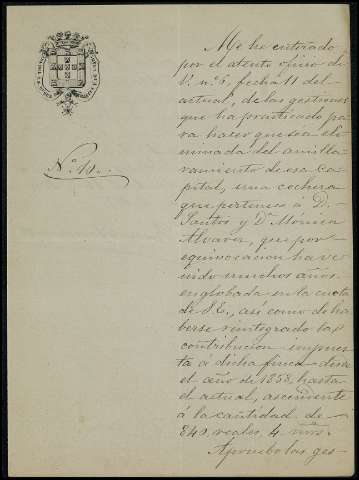 Me he enterado
por el atento oficio de
V. nº 6, fecha 11 del
actual, de las gestiones
que ha practicado pa
ra hacer que sea eli
minada del amilla-
ramiento de esa Ca-
pital, una cochera
que pertenece á D.
Santos y Dª Mónica
Alvarez, que por
equivocacion ha ve
nido muchos años
englobada en la cuota
de S.E., así como de ha
berse reintegrado la
contribucion impues
ta á dicha finca desde
el año de 1858, hasta
el actual, ascendente
á la cantidad de
849 reales 4 mrs.
Apruebo las ges-
Nº 10.